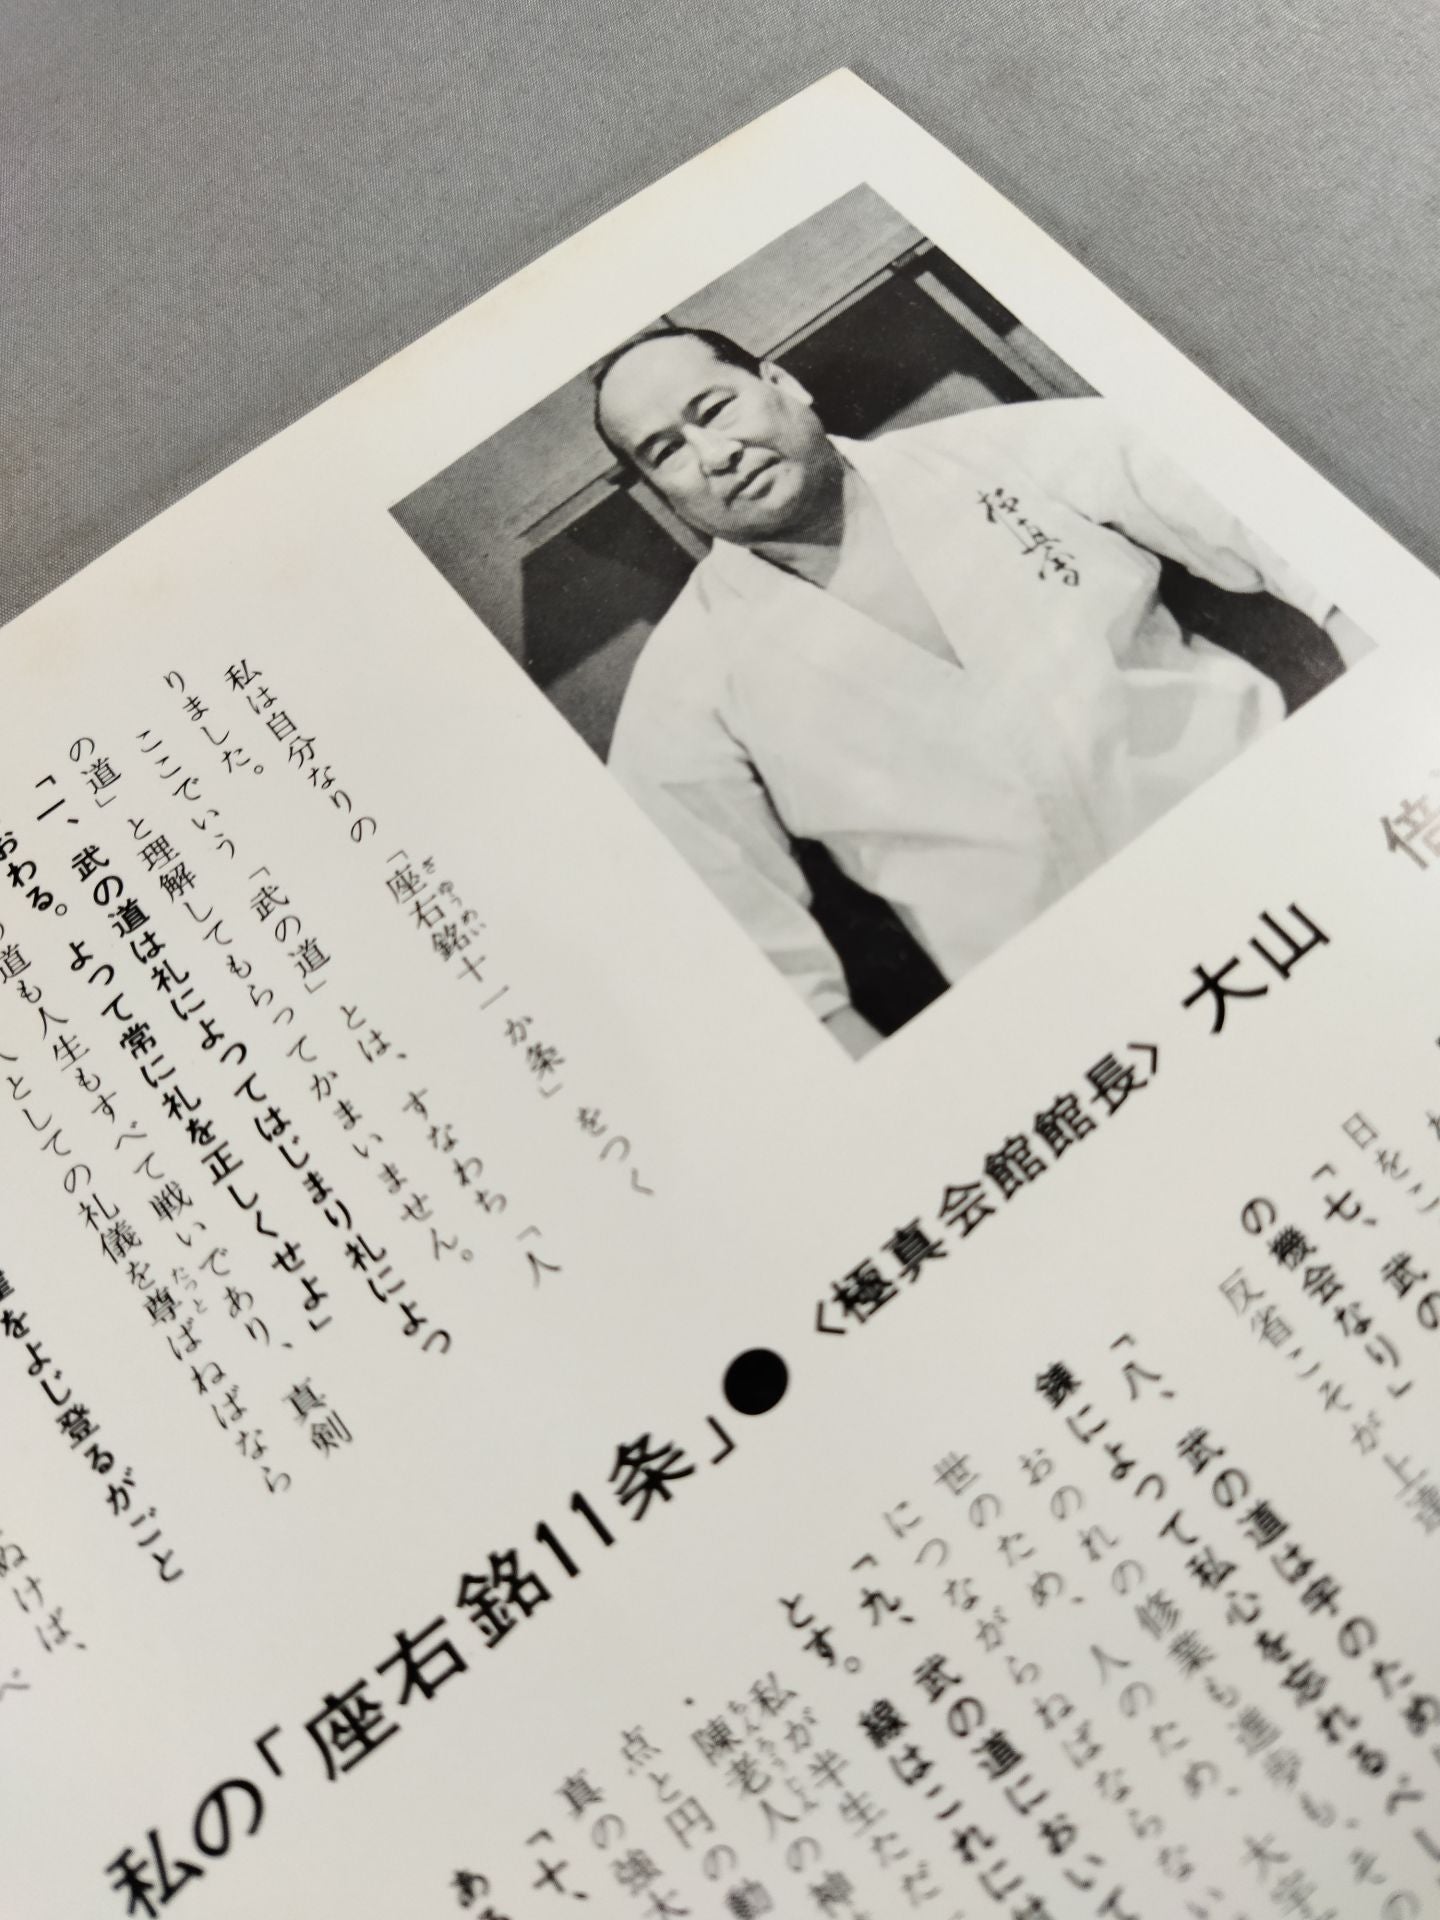 極真会
私の「座右銘11条」●〈極真会館館長〉大山
倍
私は自分なりの「座右銘十一か条」をつく
ぎゆうめい
りました。
ここでいう「武の道」とは、すなわち「人
の道」と理解してもらってかまいません。
「一、武の道は礼によってはじまり礼によっ
おわる。よって常に礼を正しくせよ」
道も人生もすべて戦いであり、真剣
としての礼儀を尊ばねばなら
たっと
をよじ登るがごと
ぬけば、
日をこ
「七、武の
の機会なり」
反省こそが上達
「八、武の道は字のため
錬によって私心を忘れるべし
おのれの修業も進歩も、その
世のため、人のため、大
につながらねばならない
「九、武の道において
線はこれに
とす。
私が半生ただ
陳老人の神
ちんろうじん
点と円の動
真の強大
「十、
ある